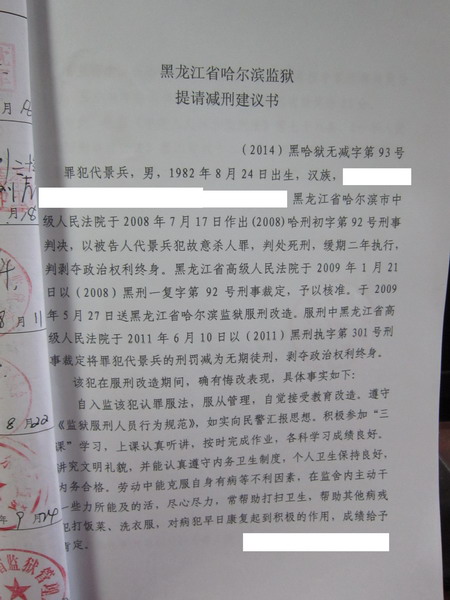 黑龙江省哈尔滨监狱
提请减刑建议书
（2014）黑哈狱无减字第93号
罪犯代景兵，男，1982年8月24日出生，汉族，
黑龙江省哈尔滨市中
级人民法院于2008年7月17日作出(2008)哈刑初字第92号刑事
判决，以被告人代景兵犯故意杀人罪，判处死刑，缓期二年执行，
判剥夺政治权利终身。黑龙江省高级人民法院于2009年1月21
日以（2008）黑刑一复字第92号刑事裁定，予以核准。于2009
年5月27日送黑龙江省哈尔滨监狱服刑改造。服刑中黑龙江省高
级人民法院于2011年6月10日以(2011)黑刑执字第301号刑
事裁定将罪犯代景兵的刑罚减为无期徒刑，剥夺政治权利终身。
该犯在服刑改造期间，确有悔改表现，具体事实如下：
自入监该犯认罪服法，服从管理，自觉接受教育改造。遵守
《监狱服刑人员行为规范》，如实向民警汇报思想。积极参加“三
课”学习，上课认真听讲，按时完成作业，各科学习成绩良好。
讲究文明礼貌，并能认真遵守内务卫生制度，个人卫生保持良好，
内务合格。劳动中能克服自身有病等不利因素，在监舍内主动干
一些力所能及的活，尽心尽力，常帮助打扫卫生，帮助其他病残
犯打饭菜、洗衣服，对病犯早日康复起到积极的作用，成绩给予
肯定。
月
8月11
8月22
9月24
监狱管理